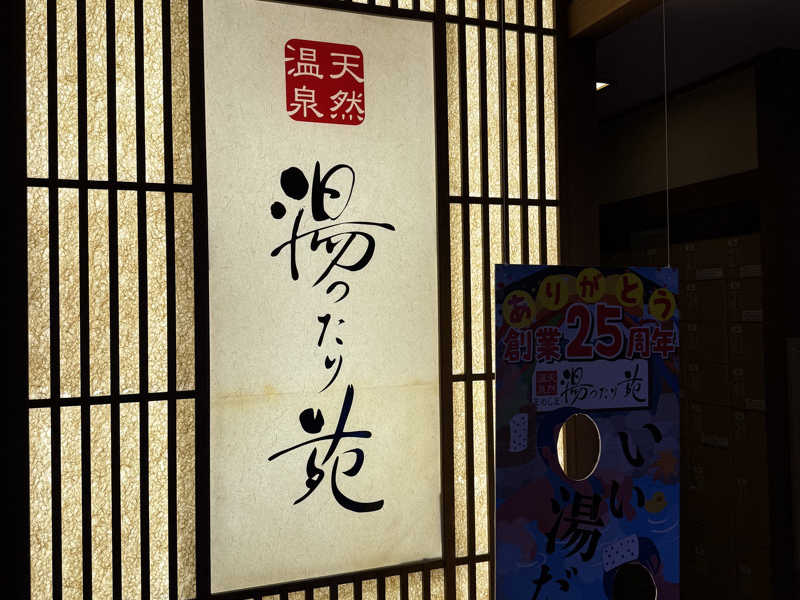 天然
温泉
湯ったり苑
ありがとう
創業25周年
天然
温泉
湯ったり苑
いい
湯だ